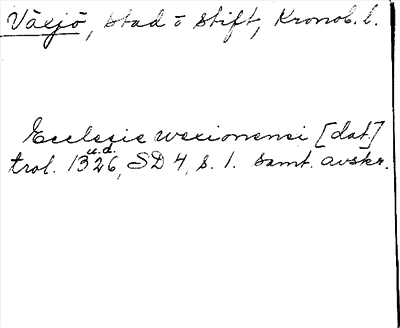 Växjö, stad o stift, Kronob. l.
Ecclesie wexionensi [dat.]
trol. 1326 u.d., SD 4, s. 1. samt. avskr.